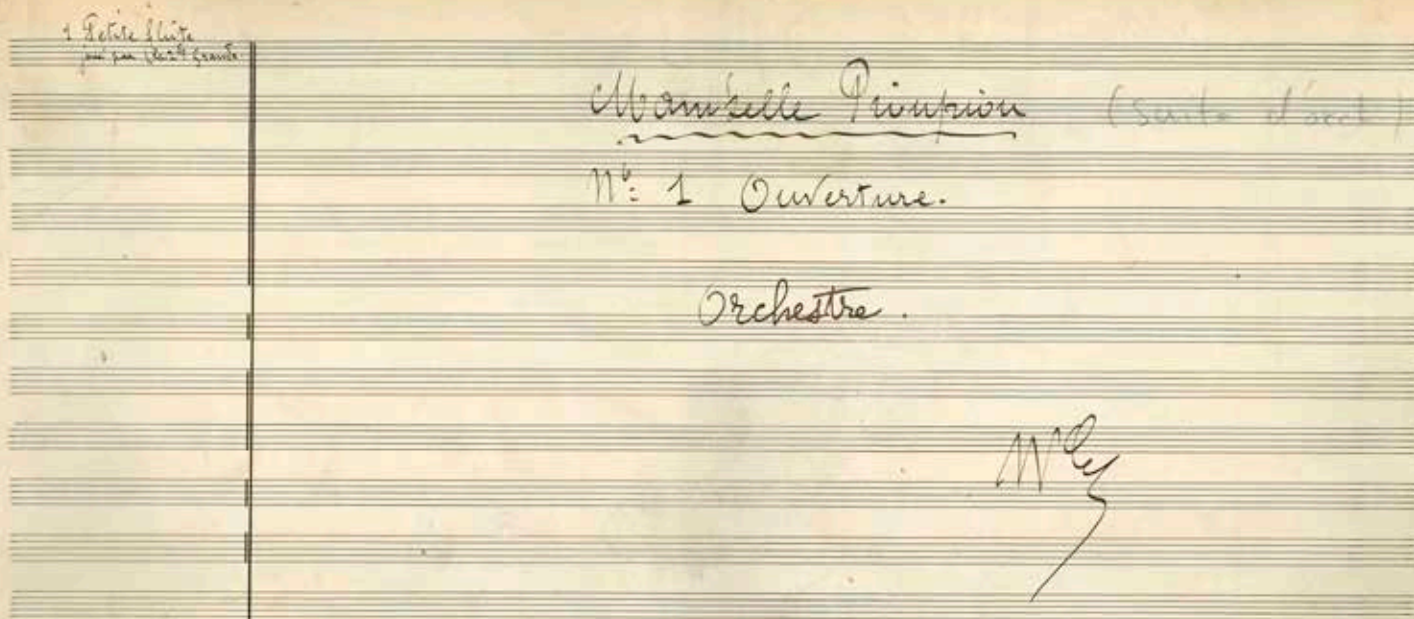 1 Petite flûte
joué par la 2de grande
Mam'zelle Pioupiou (Suite d'orch)
No: 1 Ouverture.
Orchestre.